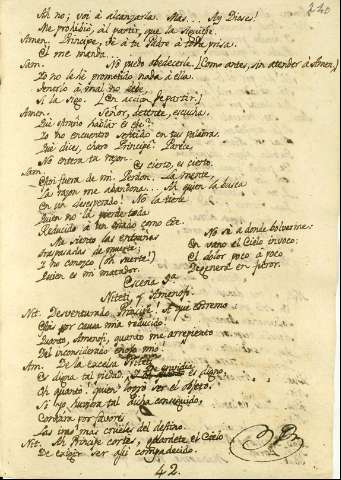 240
Ah no; voi à alcanzarla. Mas... Ay Dioses!
Me prohibió, al partir, que la siguiese.
Amen. Principe, ve à tu Padre à toda prisa.
El me manda...
Sam. No puedo obedecerle. [Como antes, sin atender à Amen.]
Yo no le hè prometido nada à ella.
Tenerlo à mal no debe,
Si la sigo. [En accion de partir.]
Amen. Señor, detente, escucha.
Què extraño hablar es este?
Yo no encuentro sentido en tus palabras.
Què dices, charo Principe? Parece,
No entera tu razon.
Sam. Es cierto, es cierto.
Estoi fuera de mi. Perdon. La mente,
La razon me abandona... Ah quien la busca
En un desesperado! No la tiene
Quien no la pierde toda
Reducido à tan estado como este.
Me siento las entrañas
Traspasadas de muerte;
Y no conozco (oh suerte!)
Quien es mi matador.
No sè à donde bolverme:
En vano el Cielo invoco:
El dolor poco à poco
Degenera en furor.
Escena 9a
Niteti, y Amenofi.
Nit. Desventurado Principe! A què extremo
Estàs por causa mia reducido!
Quanto, Amenofi, quanto me arrepiento
Del inconsiderado enojo mio!
Am. De la excelsa Niteti
Es digna tal piedad. de envidia es digno,
Oh quanto! quien logrò ser el objeto.
Si yo huviera tal dicha conseguido,
Contara por favores
Las iras mas crueles del destino.
Nit. Ah Principe cortès, guardete el Cielo
De exigir ser assi compadecido.
42.